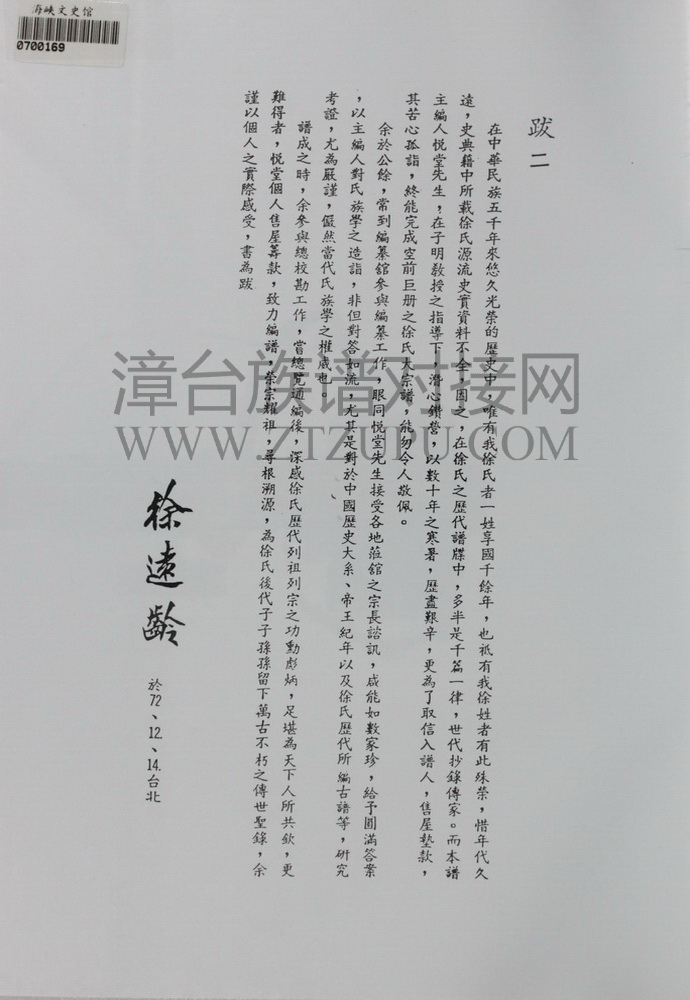 海峡文史馆
0700169
跋二
在中華民族五千年來悠久光榮的歷史中，唯有我徐氏者一姓享國千餘年，也祇有我徐姓者有此殊榮，惜年代久
遠，史典籍中所載徐氏源流史實資料不全，因之，在徐氏之歷代譜牒中，多半是千篇一律，世代抄錄傳家。而本譜
主編人悅堂先生，在子明教授之指導下，潛心鑽營，以數十年之寒暑，歷盡艱辛，更為了取信入譜人，售屋墊款，
其苦心孤詣，終能完成空前巨册之徐氏大宗譜，能勿令人敬佩。
余於公餘，常到編纂舘參與編纂工作，眼同悅堂先生接受各地蒞舘之宗長諮訊，咸能如數家珍，給予圓滿答案
，以主編人對氏族學之造詣，非但對答如流，尤其是對於中國歷史大系、帝王紀年以及徐氏歷代所編古譜等，研究
考證，尤為嚴謹，儼然當代氏族學之權威也。
譜成之時，余參與總校勘工作，嘗總覽通編後，深感徐氏歷代列祖列宗之功勳彪炳，足堪為天下人所共欽，更
難得者，悅堂個人售屋籌款，致力編譜，榮宗耀祖，尋根溯源，為徐氏後代子子孫孫留下萬古不朽之傳世聖錄，余
謹以個人之實際感受，書為跋
徐遠齡
於72、12、14.台北
漳台族谱对接网
WWW.ZTZUPU.COM